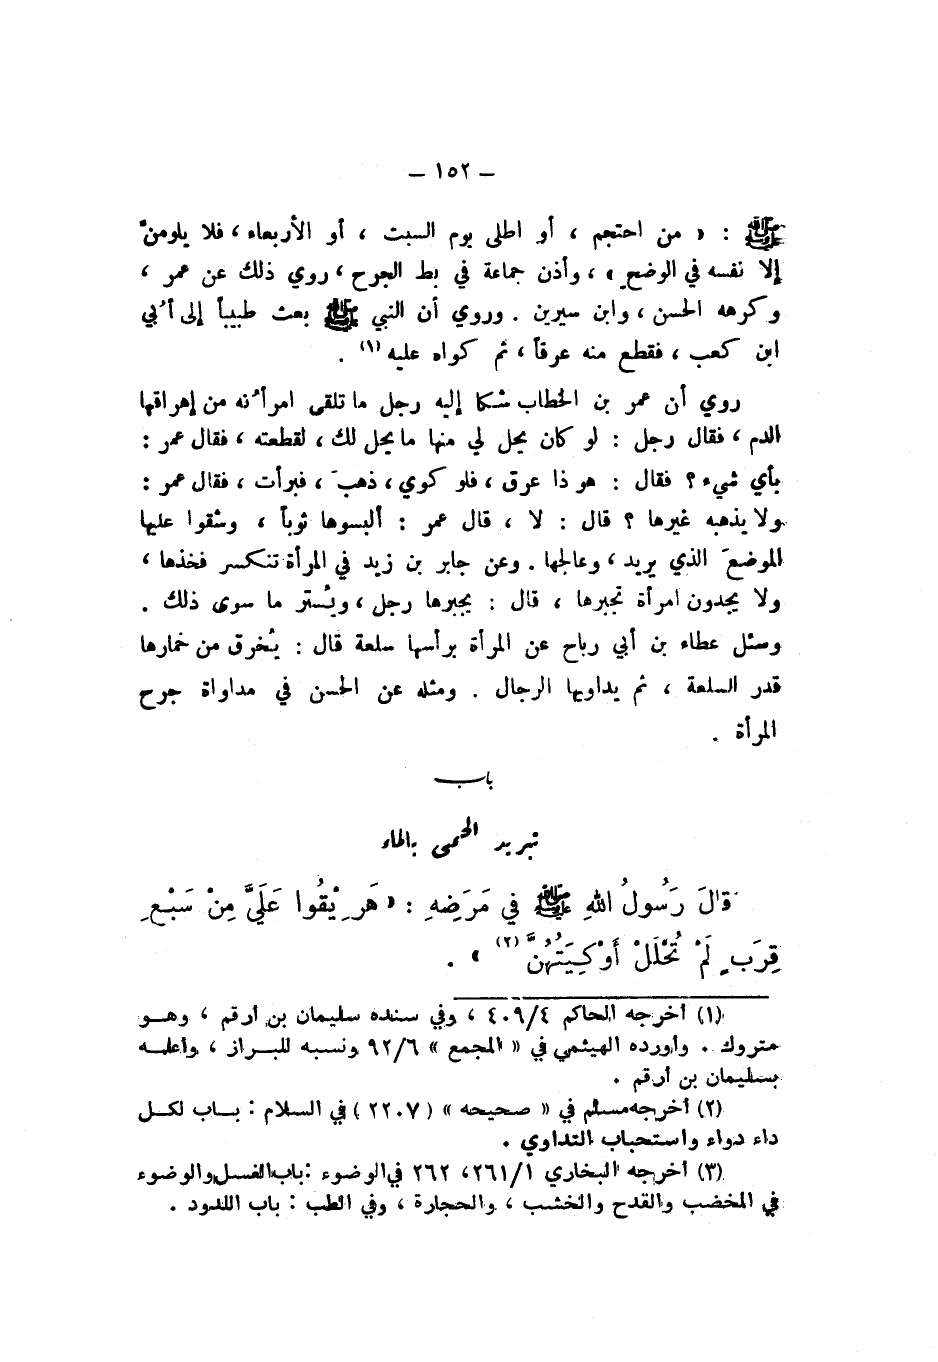 – ١٥٢ –
ﷺ : « من احتجم ، أو اطلى يوم السبت ، أو الأربعاء ، فلا يلومنّ
إلا نفسه في الوضح » ، وأذن جماعة في بط الجرح ، روي ذلك عن عمر ،
وكرهه الحسن ، وابن سيرين . وروي أن النبي ﷺ بعث طبيباً إلى أُبي
ابن كعب ، فقطع منه عرقاً ، ثم كواه عليه (١) .
روي أن عمر بن الخطاب شكا إليه رجل ما تلقى امرأتُه من إهراقها
الدم ، فقال رجل : لو كان يحل لي منها ما يحل لك ، لقطعته ، فقال عمر :
بأي شيء ؟ فقال : هو ذا عرق ، فلو كوي ، ذهبَ ، فبرأت ، فقال عمر :
ولا يذهبه غيرها ؟ قال : لا ، قال عمر : ألبسوها ثوباً ، وشقوا عليها
الموضعَ الذي يريد ، وعالجها . وعن جابر بن زيد في المرأة تنكسر فخذها ،
ولا يجدون امرأة تجبرها ، قال : يجبرها رجل ، ويُستر ما سوى ذلك .
وسئل عطاء بن أبي رباح عن المرأة برأسها سلعة قال : يُخرق من خمارها
قدر السلعة ، ثم يداويها الرجال . ومثله عن الحسن في مداواة جرح
المرأة .
باب
تبريد الحمى بالماء
قالَ رَسُولُ اللهِ ﷺ في مَرَضِهِ : « هَرِيْقُوا عَلَيَّ مِنْ سَبْعِ
قِرَبٍ لَمْ تُحْلَلْ أَوْكِيَتُهُنَّ (٢) » .
(١) أخرجه الحاكم ٤٠٩/٤ ، وفي سنده سليمان بن أرقم ، وهو
متروك . وأورده الهيثمي في « المجمع » ٩٢/٦ ونسبه للبزار ، وأعله
بسليمان بن أرقم .
(٢) أخرجه مسلم في « صحيحه » ( ٢٢٠٧ ) في السلام : باب لكل
داء دواء واستحباب التداوي .
(٣) أخرجه البخاري ٢٦١/١ ، ٢٦٢ في الوضوء : باب الغسل والوضوء
في المخضب والقدح والخشب ، والحجارة ، وفي الطب : باب اللدود .